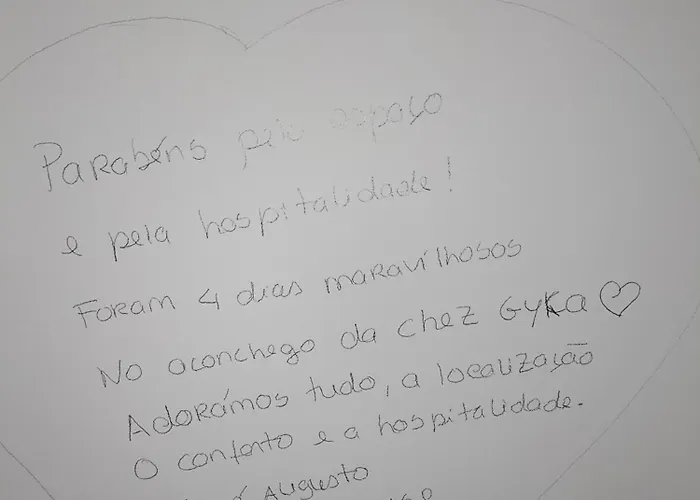 Parabéns pelo espaço
e pela hospitalidade!
Foram 4 dias maravilhosos
No aconchego da chez Gyka ♡
Adorámos tudo, a localização
O conforto e a hospitalidade.
Augusto